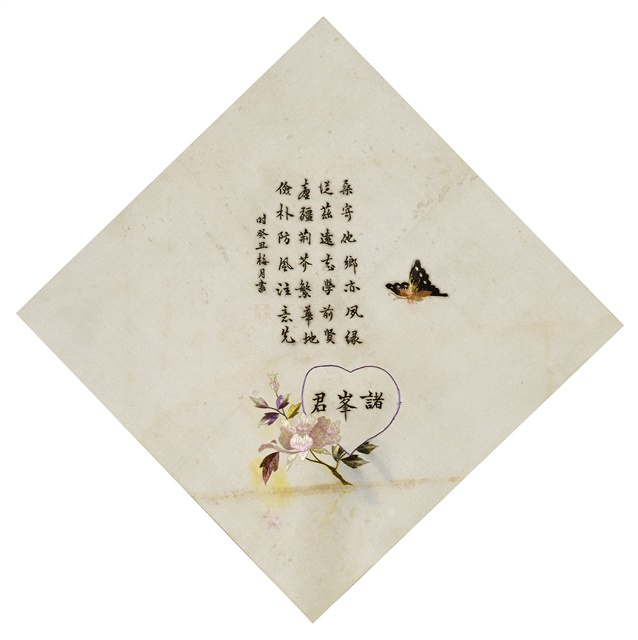 桑寄他鄉亦夙緣
從茲遠志學前賢
臺疆荊芥繁華地
儉朴防風注意先
时癸丑梅月書
諸峯君